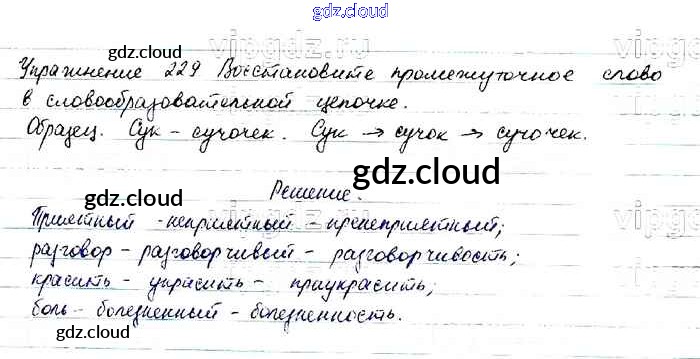 gdz.cloud
gdz.cloud vipgdz.ru
gdz.cloud
Упражнение 229 Восстановите промежуточное слово
в словообразовательной цепочке.
Образец. Сук - сучочек. Сук → сучок → сучочек.
gdz.cloud
gdz.cloud
Решение.
Приятный - неприятный - пренеприятный;
разговор - разговорчивый - разговорчивость;
gdz.cloud
красить - украсить - приукрасить;
боль - болезненный - болезненность.
gdz.cloud